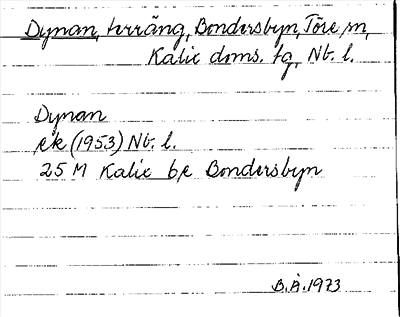 Dynan, terräng, Bondersbyn, Töre sn,
Kalix doms. tg, Nb. l.
Dynan
ek (1953) Nb. l.
25 M Kalix bk Bondersbyn
B.Å. 1973